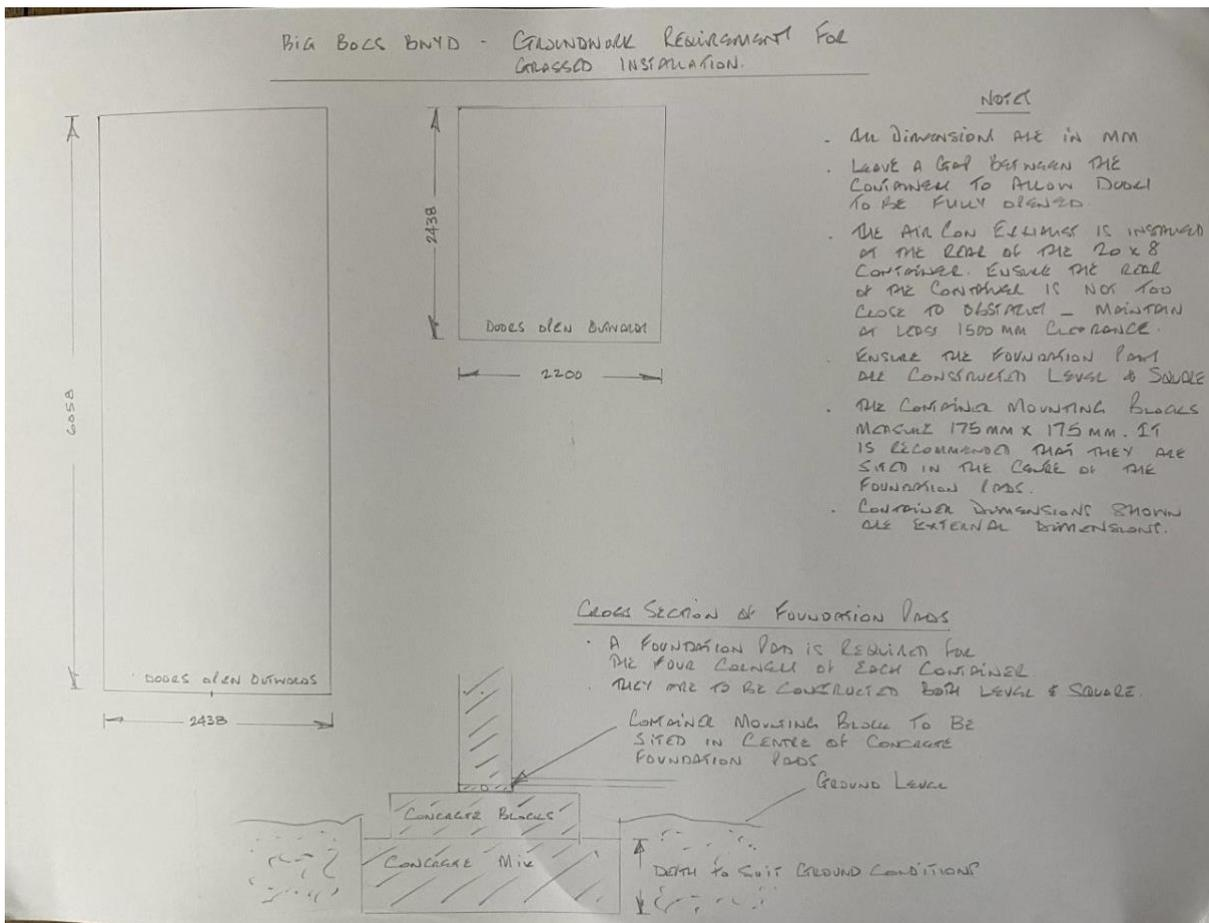 BIG BOCS BWYD - GROUNDWORK REQUIREMENT FOR
GRASSED INSTALLATION.
6058
DOORS OPEN OUTWARDS
2438
2438
DOORS OPEN OUTWARDS
2200
NOTES
. ALL DIMENSIONS ARE IN MM
. LEAVE A GAP BETWEEN THE
CONTAINERS TO ALLOW DOORS
TO BE FULLY OPENED.
. THE AIR CON EXHAUST IS INSTALLED
AT THE REAR OF THE 20 x 8
CONTAINER. ENSURE THE REAR
OF THE CONTAINER IS NOT TOO
CLOSE TO OBSTACLES - MAINTAIN
AT LEAST 1500 MM CLEARANCE.
. ENSURE THE FOUNDATION PADS
ARE CONSTRUCTED LEVEL & SQUARE
. THE CONTAINER MOUNTING BLOCKS
MEASURE 175 MM x 175 MM. IT
IS RECOMMENDED THAT THEY ARE
SITED IN THE CENTRE OF THE
FOUNDATION PADS.
. CONTAINER DIMENSIONS SHOWN
ARE EXTERNAL DIMENSIONS.
CROSS SECTION OF FOUNDATION PADS
. A FOUNDATION PAD IS REQUIRED FOR
THE FOUR CORNERS OF EACH CONTAINER.
. THEY ARE TO BE CONSTRUCTED BOTH LEVEL & SQUARE.
CONTAINER MOUNTING BLOCK TO BE
SITED IN CENTRE OF CONCRETE
FOUNDATION PADS
GROUND LEVEL
CONCRETE BLOCKS
CONCRETE MIX
DEPTH TO SUIT GROUND CONDITIONS